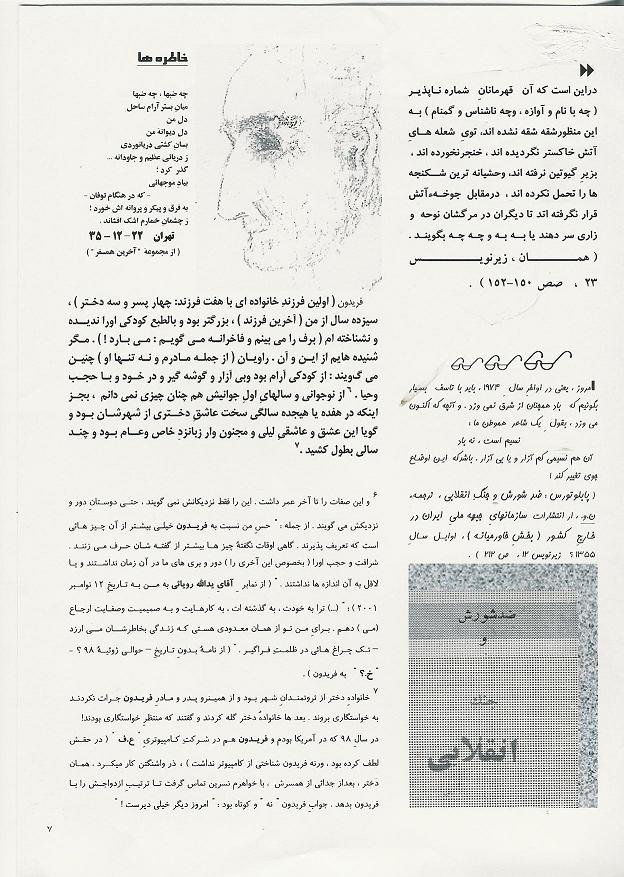 دراین است که آن قهرمانانِ شماره ناپذیر
( چه با نام و آوازه ، وچه ناشناس و گمنام ) به
این منظورشقه شقه نشده اند، توی شعله هایِ
آتش خاکستر نگردیده اند ، خنجرنخورده اند ،
بزیرِ گیوتین نرفته اند، وحشیانه ترین شـکنجه
ها را تحمل نکرده اند ، درمقابلِ جوخهءآتش
قرار نگرفته اند تا دیگران در مرگشان نوحه و
زاری سر دهند یا به به و چه چه بگویند .
( همـــــان ، زیرنویـــس
۲۳ ، صص ۱۵۰-۱۵۲ ) .
امروز ، یعنی در اواخرِ سالِ ۱۹۷۴ ، باید با تاسف بسیار
بگوئیم که باد همچنان از شرق نمی وزد . و آنهم که اکنون
می وزد ، بقولِ یک شاعرِ هموطنِ ما :
نسیم است ، نه باد
آن هم نسیمی کم آزار و یا بی آزار . باشدکه این اوضاعِ
جوی تغییر کند !
( پابلوتورس : ضد شورش و جنگ انقلابی ، ترجمهء
ن.و. ، از انتشارات سازمانهای جبهه ملی ایران در
خارج کشور ( بخش خاورمیانه ) ، اوایل سال
۱۳۵۵ ؟ زیرنویس ۱۲ ، ص ۲۱۲ ) .
ضدشورش
و
جنگ
انقلابی
خاطره ها
چه شبها ، چه شبها
میانِ بسترِ آرام ساحل
دل من
دل دیوانهٔ من
بسانِ کشتی دریانوردی
ز دریائی عظیم و جاودانه ...
گذر کرد ؛
بیادِ موجهائی
- که در هنگام توفان -
به فرق و پیکر و پروانه اش خورد ؛
ز چشمان خمارم اشک افشاند .
تهران ۲۲-۱۲-۳۵
( از مجموعهٔ "آخرین همسفر" )
فریدون ( اولین فرزندِ خانواده ای با هفت فرزند: چهار پسر و سه دختر ) ،
سیزده سال از من ( آخرین فرزند ) ، بزرگتر بود و بالطبع کودکی اورا ندیـده
و نشناخته ام ( برف را می بینم و فاخرانـه مـی گویـم : مـی بـارد ! ) . مـگر
شنیده هایم از این و آن . راویان ( از جملـه مـادرم و نـه تنـها او ) چنیـن
مـی گـویند : از کودکی آرام بود وبی آزار و گوشه گیر و در خـود و با حـجب
وحیا . ۶ از نوجوانی و سالهای اولِ جوانیش هم چنان چیزی نمی دانم ، بجـز
اینکه در هفده یا هیجده سالگی سخت عاشقِ دختـری از شهرشـان بـود و
گویا این عشق و عاشقیِ لیلی و مجنون وار زبانزدِ خاص وعـام بود و چنـد
سالی بطول کشید . ۷
۶ و این صفات را تا آخر عمر داشت . این را فقط نزدیکانش نمی گویند ، حتـی دوستانِ دور و
نزدیکش می گویند . از جمله : " حسِ من نسبت به فریـدون خیلـی بیشتر از آن چیـز هائـی
است که تعریف پذیرند . گاهی اوقات نگفتهٔ چیز ها بیشتر از گفتـه شـان حـرف مـی زننـد .
شرافت و حجب اورا ( بخصوص این آخری را ) دور و بری های ما در آن زمان نداشتنـد و یـا
لااقل به آن اندازه ها نداشتند . " ( از نمابر آقای یدالله رویائی به من بـه تـاریخِ ۱۲ نوامبر
۲۰۰۱ ) ؛ " (...) ترا به خودت ، به گذشته ات ، به کارهـایت و بـه صمیمیت وصفایت ارجـاع
(می ) دهم . بـرای من تـو از همان معـدودی هستی کـه زنـدگی بخاطرشـان مـی ارزد
– تـک چراغ هائی در ظلمـتِ فـراگیر . " ( از نامهٔ بدونِ تاریخِ – حوالی ژوئیهٔ ۹۸ ؟ -
"خ.؟" به فریدون ) .
۷ خانوادهِ دختر از ثروتمندانِ شهر بود و از همینرو پدر و مـادرِ فریـدون جرات نکردنـد
به خواستگاری بروند . بعد ها خانوادهٔ دختر گله کردند و گفتند که منتظرِ خواستگاری بودند!
در سال ۹۸ که در آمریکا بودم و فریـدون هـم در شـرکتِ کـامپیوتریِ " ع.ف " ( در حقـش
لطف کرده بود ، ورنه فریدون شناختی از کامپیوتر نداشت ) ، در واشنگتن کار میکـرد . همـان
دختر ، بعداز جدائی از همسرش ، با خواهرم نسرین تماس گرفت تـا ترتیـبِ ازدواجـش را بـا
فریدون بدهد . جوابِ فریدون " نه " و کوتاه بود : " امروز دیگر خیلی دیرست ! "
۷